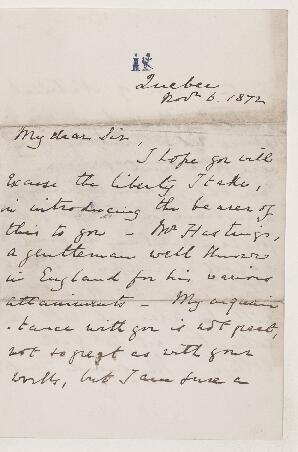 Quebec
Novr. 6. 1872
My dear Sir,
I hope you will
excuse the liberty I take,
in introducing the bearer of
this to you - Mr Hastings,
a gentleman well known
in England for his various
attainments - My acquain
-tance with you is not great,
not so great as with your
works, but I am sure a